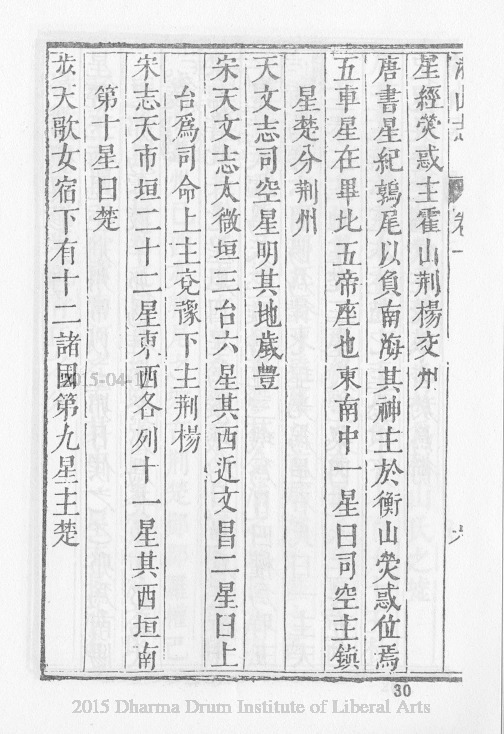 山志 卷一 六
星經熒惑主霍山荆楊交州
唐書星紀鶉尾以負南海其神主於衡山熒惑位焉
五車星在畢北五帝座也東南中一星曰司空主鎮
星楚分荆州
天文志司空星明其地歲豐
宋天文志太微垣三台六星其西近文昌二星曰上
台爲司命上主兗豫下主荆楊
宋志天市垣二十二星東西各列十一星其西垣南
第十星曰楚
步天歌女宿下有十二諸國第九星主楚
30
2015-04-1
2015 Dharma Drum Institute of Liberal Arts